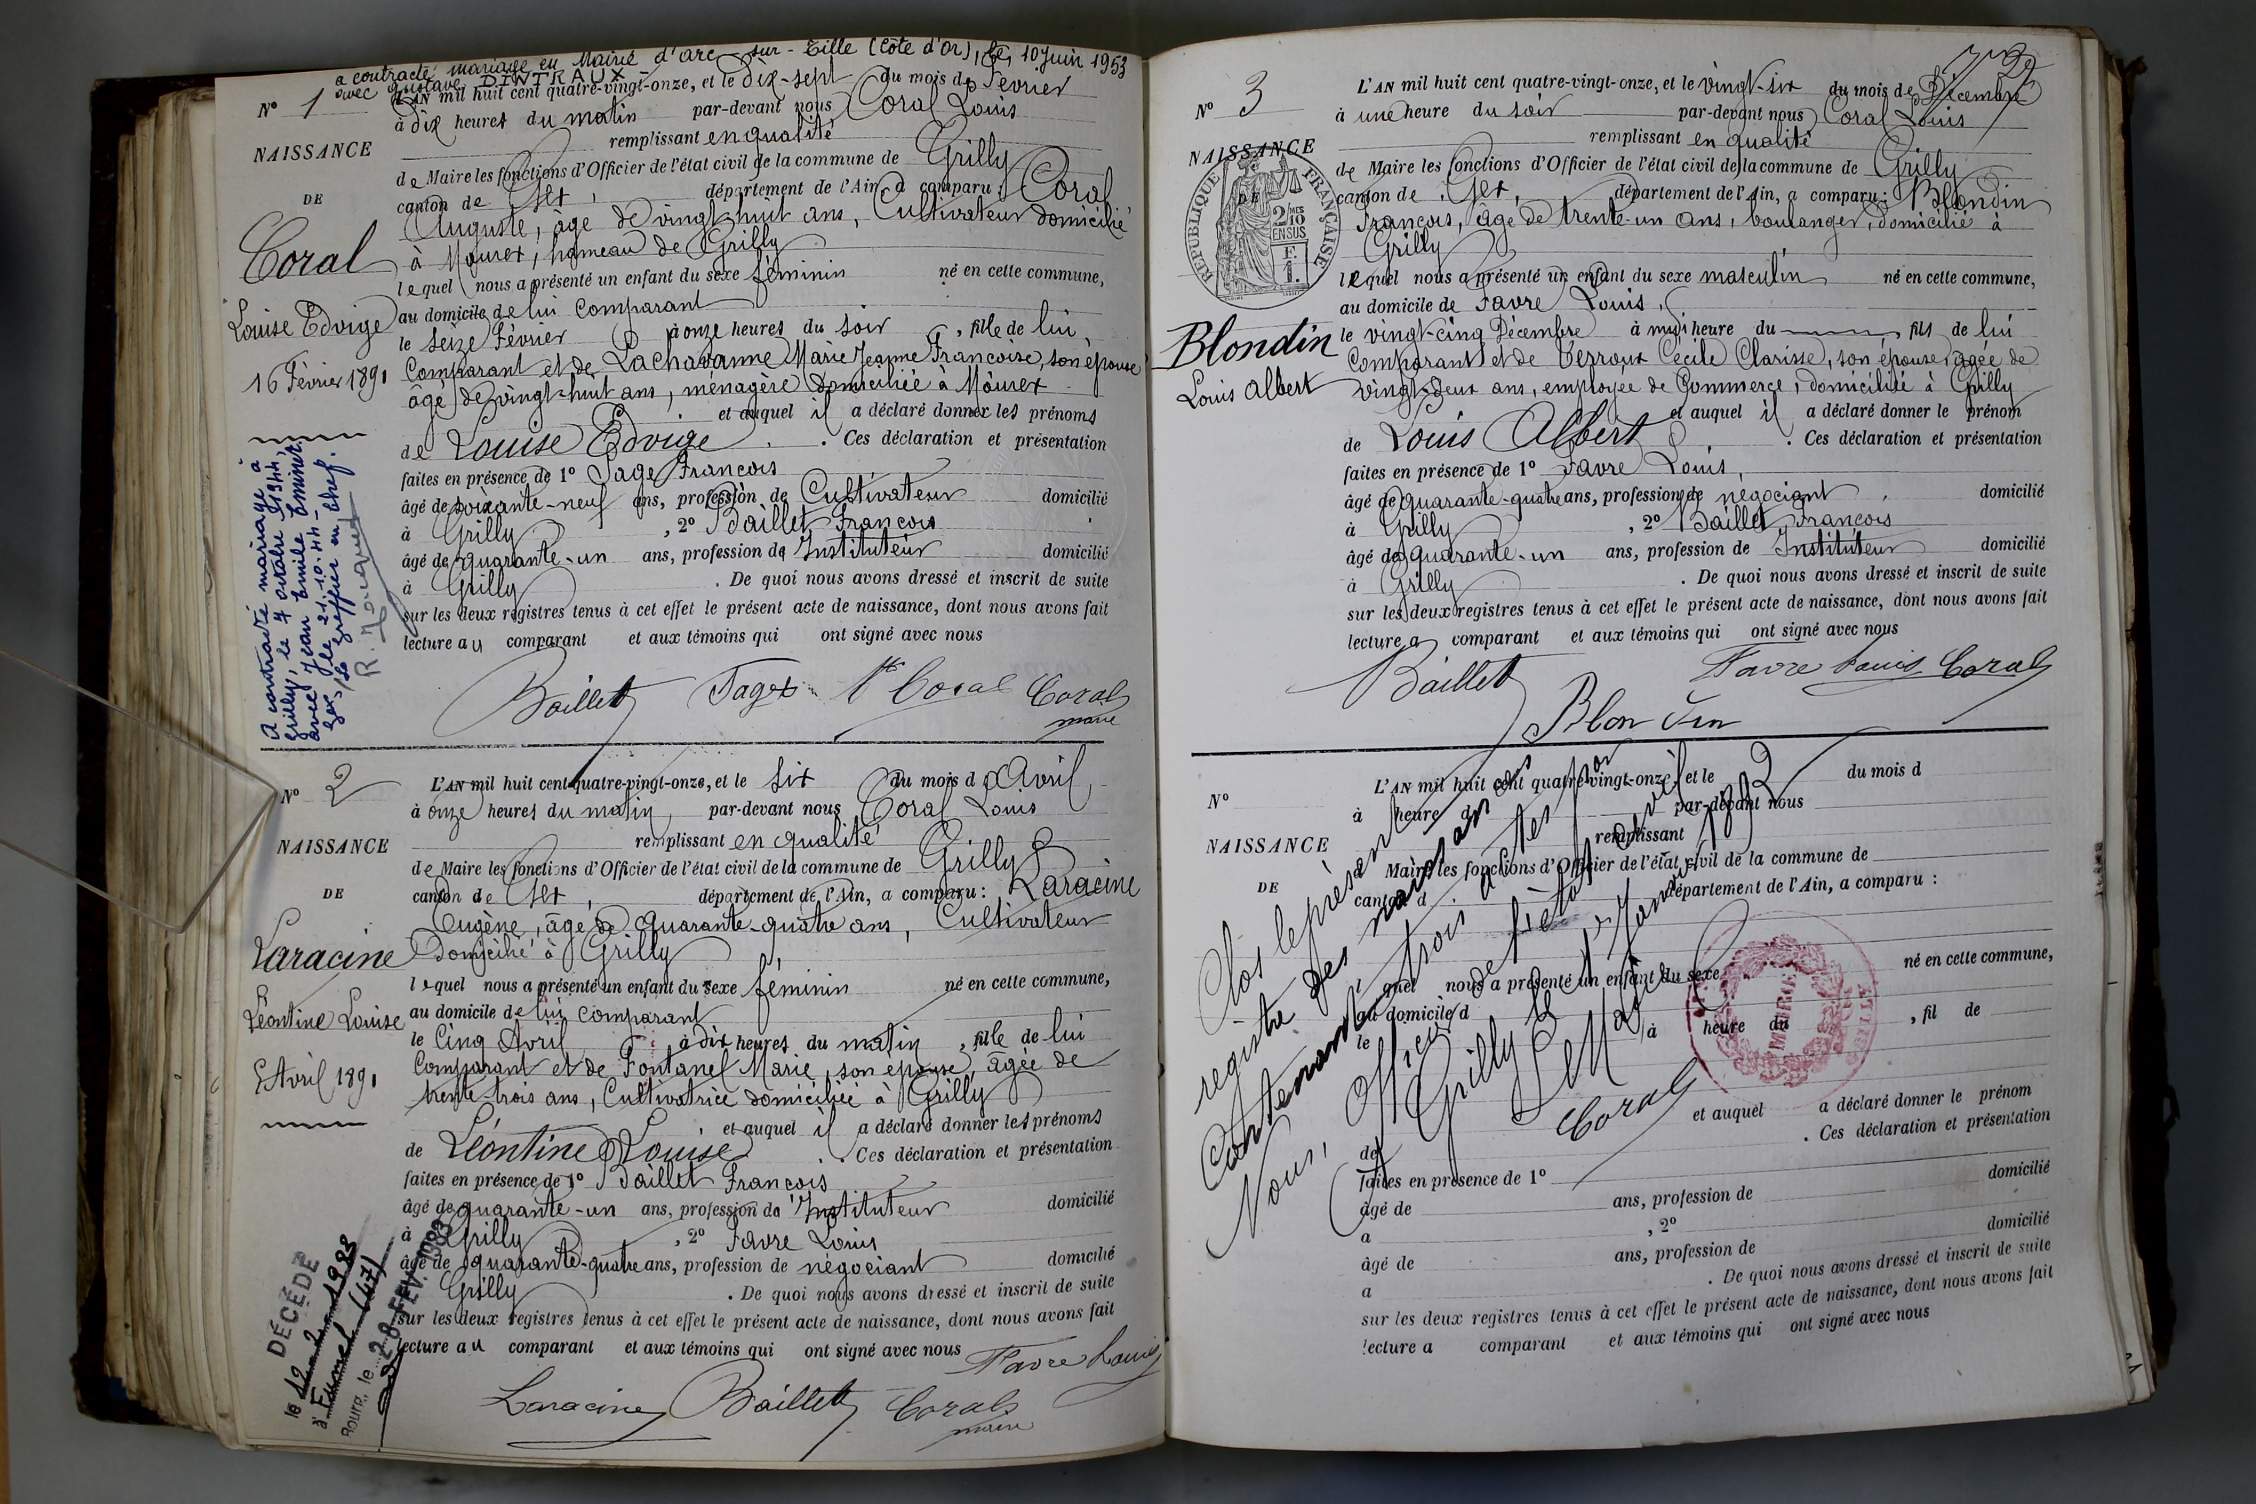 a contracté mariage en Mairie d'arc-sur-Tille (Côte d'Or), le 10 Juin 1953
avec Gustave DINTRAUX -
N° 1
NAISSANCE
DE
Coral
Louise Edvige
16 Février 1891
A contracté mariage à
Grilly, le 7 octobre 1944,
avec Jean Emile Eminet.
Gex, le 21.10.44 -
Le greffier en chef.
L'AN mil huit cent quatre-vingt-onze, et le dix-sept du mois de Février
à dix heures du matin par-devant nous Coral Louis
remplissant en qualité
de Maire les fonctions d'Officier de l'état civil de la commune de Grilly
canton de Gex, département de l'Ain, a comparu : Coral
Auguste, âgé de vingt-huit ans, Cultivateur domicilié
à Mourex, hameau de Grilly
lequel nous a présenté un enfant du sexe féminin né en cette commune,
au domicile de lui comparant
le seize Février à onze heures du soir, fille de lui
Comparant et de Lachavanne Marie Jeanne Françoise, son épouse
âgé de vingt-huit ans, ménagère domiciliée à Mourex
et auquel il a déclaré donner les prénoms
de Louise Edvige. Ces déclaration et présentation
faites en présence de 1° Sage François
âgé de soixante-neuf ans, profession de Cultivateur domicilié
à Grilly, 2° Baillet François
âgé de quarante-un ans, profession de Instituteur domicilié
à Grilly. De quoi nous avons dressé et inscrit de suite
sur les deux registres tenus à cet effet le présent acte de naissance, dont nous avons fait
lecture au comparant et aux témoins qui ont signé avec nous
Baillet Coral Coral
maire
N° 2
NAISSANCE
DE
Laracine
Léontine Louise
5 Avril 1891
DÉCÉDÉ
le 12-2-1983
à
Bourg, le 28 FEV. 1983
L'AN mil huit cent quatre-vingt-onze, et le six du mois d'Avril
à onze heures du matin par-devant nous Coral Louis
remplissant en qualité
de Maire les fonctions d'Officier de l'état civil de la commune de Grilly
canton de Gex, département de l'Ain, a comparu : Laracine
Eugène, âgé de quarante-quatre ans, Cultivateur
Domicilié à Grilly
lequel nous a présenté un enfant du sexe féminin né en cette commune,
au domicile de lui comparant
le Cinq Avril à dix heures du matin, fille de lui
Comparant et de Fontanel Marie, son épouse, âgée de
trente-trois ans, Cultivatrice domiciliée à Grilly
et auquel il a déclaré donner les prénoms
de Léontine Louise. Ces déclaration et présentation
faites en présence de 1° Baillet François
âgé de quarante-un ans, profession de Instituteur domicilié
à Grilly, 2° Favre Louis
âgé de quarante-quatre ans, profession de négociant domicilié
Grilly. De quoi nous avons dressé et inscrit de suite
sur les deux registres tenus à cet effet le présent acte de naissance, dont nous avons fait
lecture au comparant et aux témoins qui ont signé avec nous
Favre Louis
Laracine Baillet Coral
maire
N° 3
NAISSANCE
DE
RÉPUBLIQUE FRANÇAISE
2/10 MES
EN SUS
F.
1.
Blondin
Louis Albert
L'AN mil huit cent quatre-vingt-onze, et le vingt-six du mois de Décembre
à une heure du soir par-devant nous Coral Louis
remplissant en qualité
de Maire les fonctions d'Officier de l'état civil de la commune de Grilly
canton de Gex, département de l'Ain, a comparu : Blondin
François, âgé de trente-un ans, boulanger, domicilié à
Grilly
lequel nous a présenté un enfant du sexe masculin né en cette commune,
au domicile de Favre Louis,
le vingt-cinq Décembre à midi heure du, fils de lui
Comparant et de Verroux Cécile Clarisse, son épouse, âgée de
vingt-deux ans, employée de Commerce, domiciliée à Grilly
et auquel il a déclaré donner le prénom
de Louis Albert. Ces déclaration et présentation
faites en présence de 1° Favre Louis,
âgé de quarante-quatre ans, profession de négociant, domicilié
à Grilly, 2° Baillet François
âgé de quarante-un ans, profession de Instituteur domicilié
à Grilly. De quoi nous avons dressé et inscrit de suite
sur les deux registres tenus à cet effet le présent acte de naissance, dont nous avons fait
lecture a comparant et aux témoins qui ont signé avec nous
Baillet Favre Louis Coral
Blondin
N°
NAISSANCE
DE
L'AN mil huit cent quatre-vingt-onze, et le du mois d
à heure d par-devant nous
remplissant
d Maire les fonctions d'Officier de l'état civil de la commune de
canton d département de l'Ain, a comparu :
quel nous a présenté un enfant du sexe né en cette commune,
au domicile d
le à heure du, fil de
et auquel a déclaré donner le prénom
de. Ces déclaration et présentation
faites en présence de 1°
âgé de ans, profession de domicilié
a, 2°
âgé de ans, profession de domicilié
a. De quoi nous avons dressé et inscrit de suite
sur les deux registres tenus à cet effet le présent acte de naissance, dont nous avons fait
lecture a comparant et aux témoins qui ont signé avec nous
Clos le présent
registre des naissances
Contenant trois actes par
Nous, Officier de l'état civil
à Grilly le Janvier 1892
Le Maire
Coral
MAIRIE
GRILLY